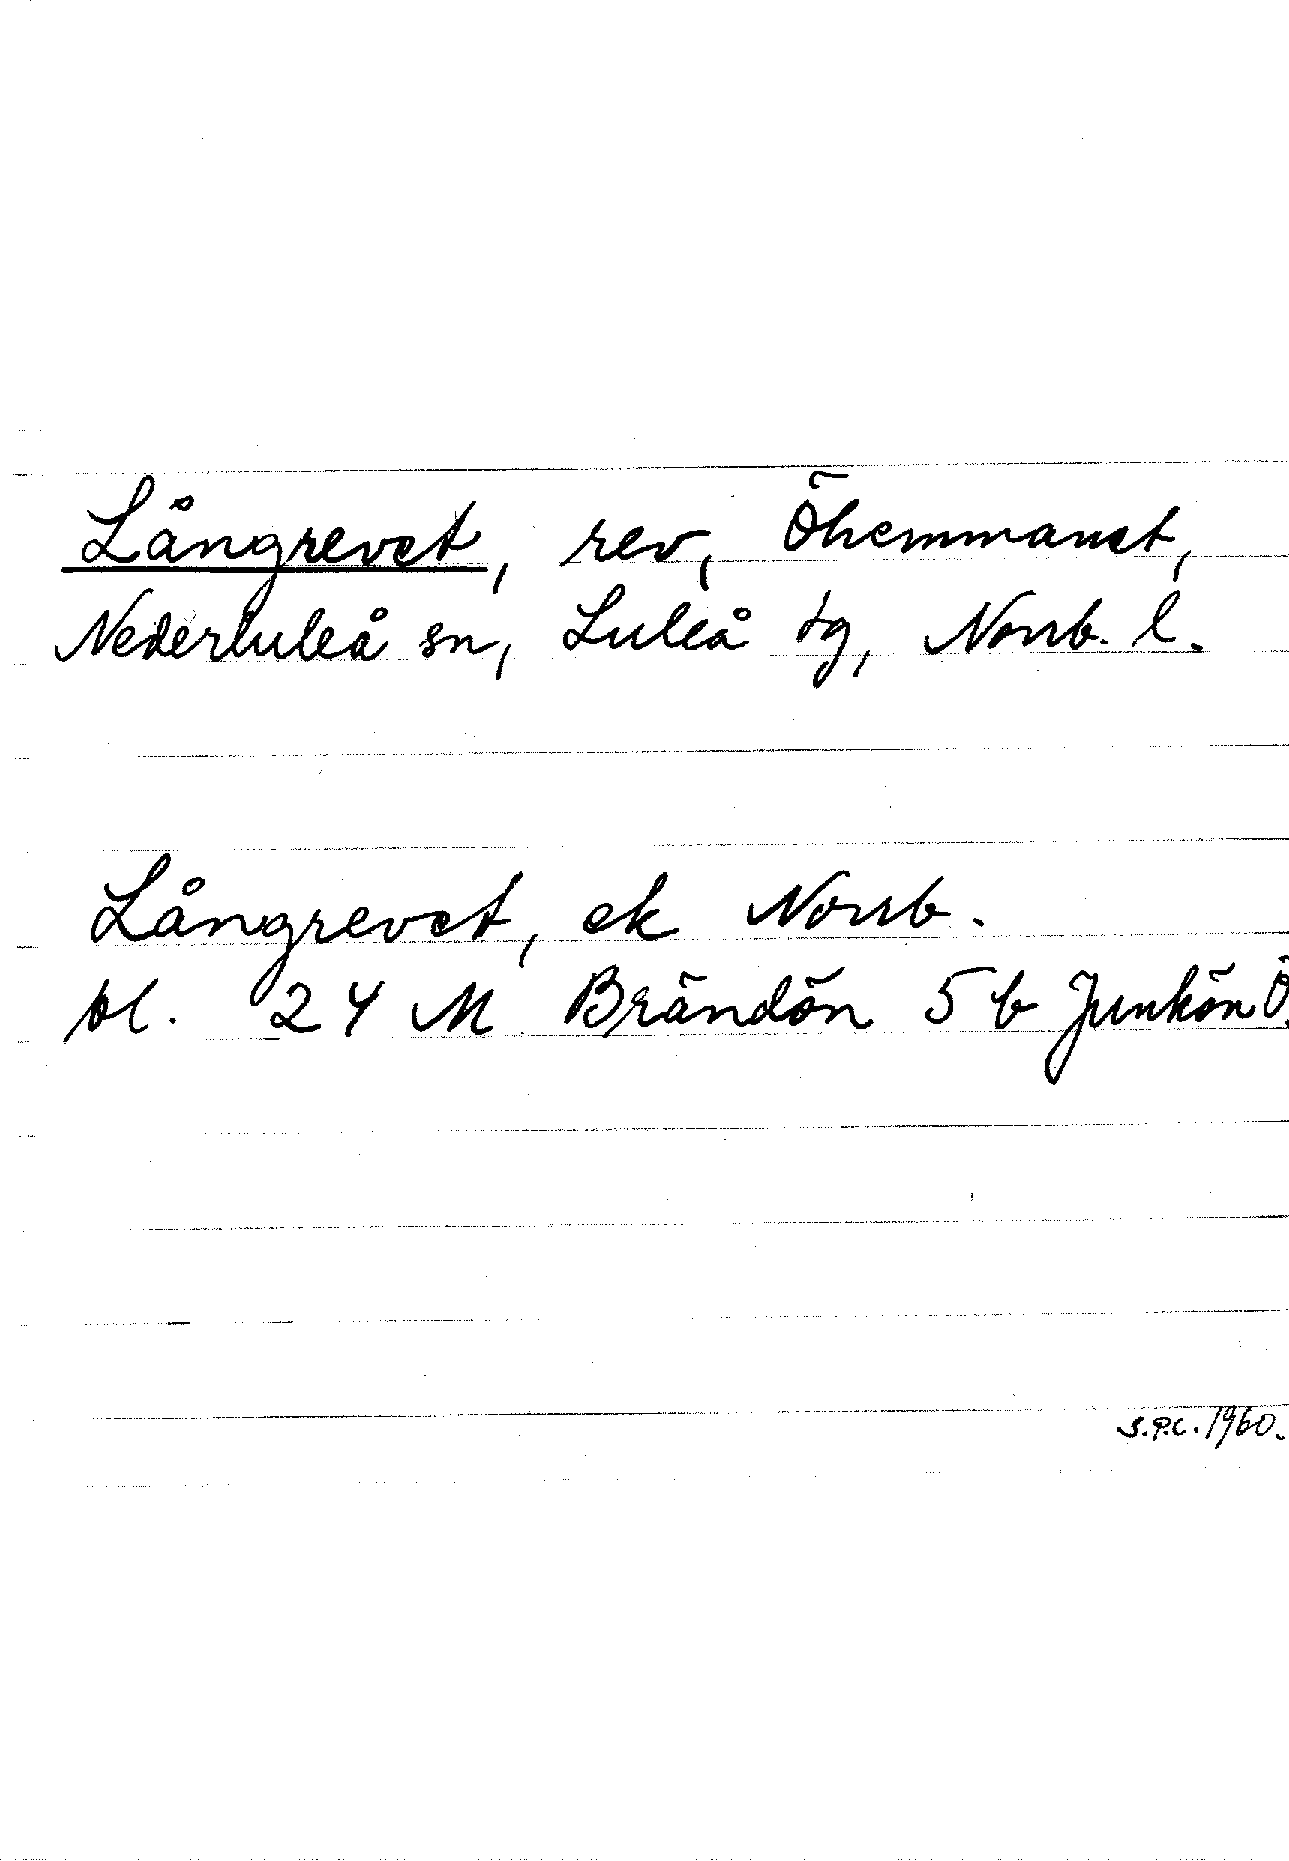 Långrevet, rev, Öhemmanet,
Nederluleå sn, Luleå tg, Norrb. l.
Långrevet, ek Norrb.
bl. 24 M Brändön 5 b Junkön Ö.
S.P.C. 1960.